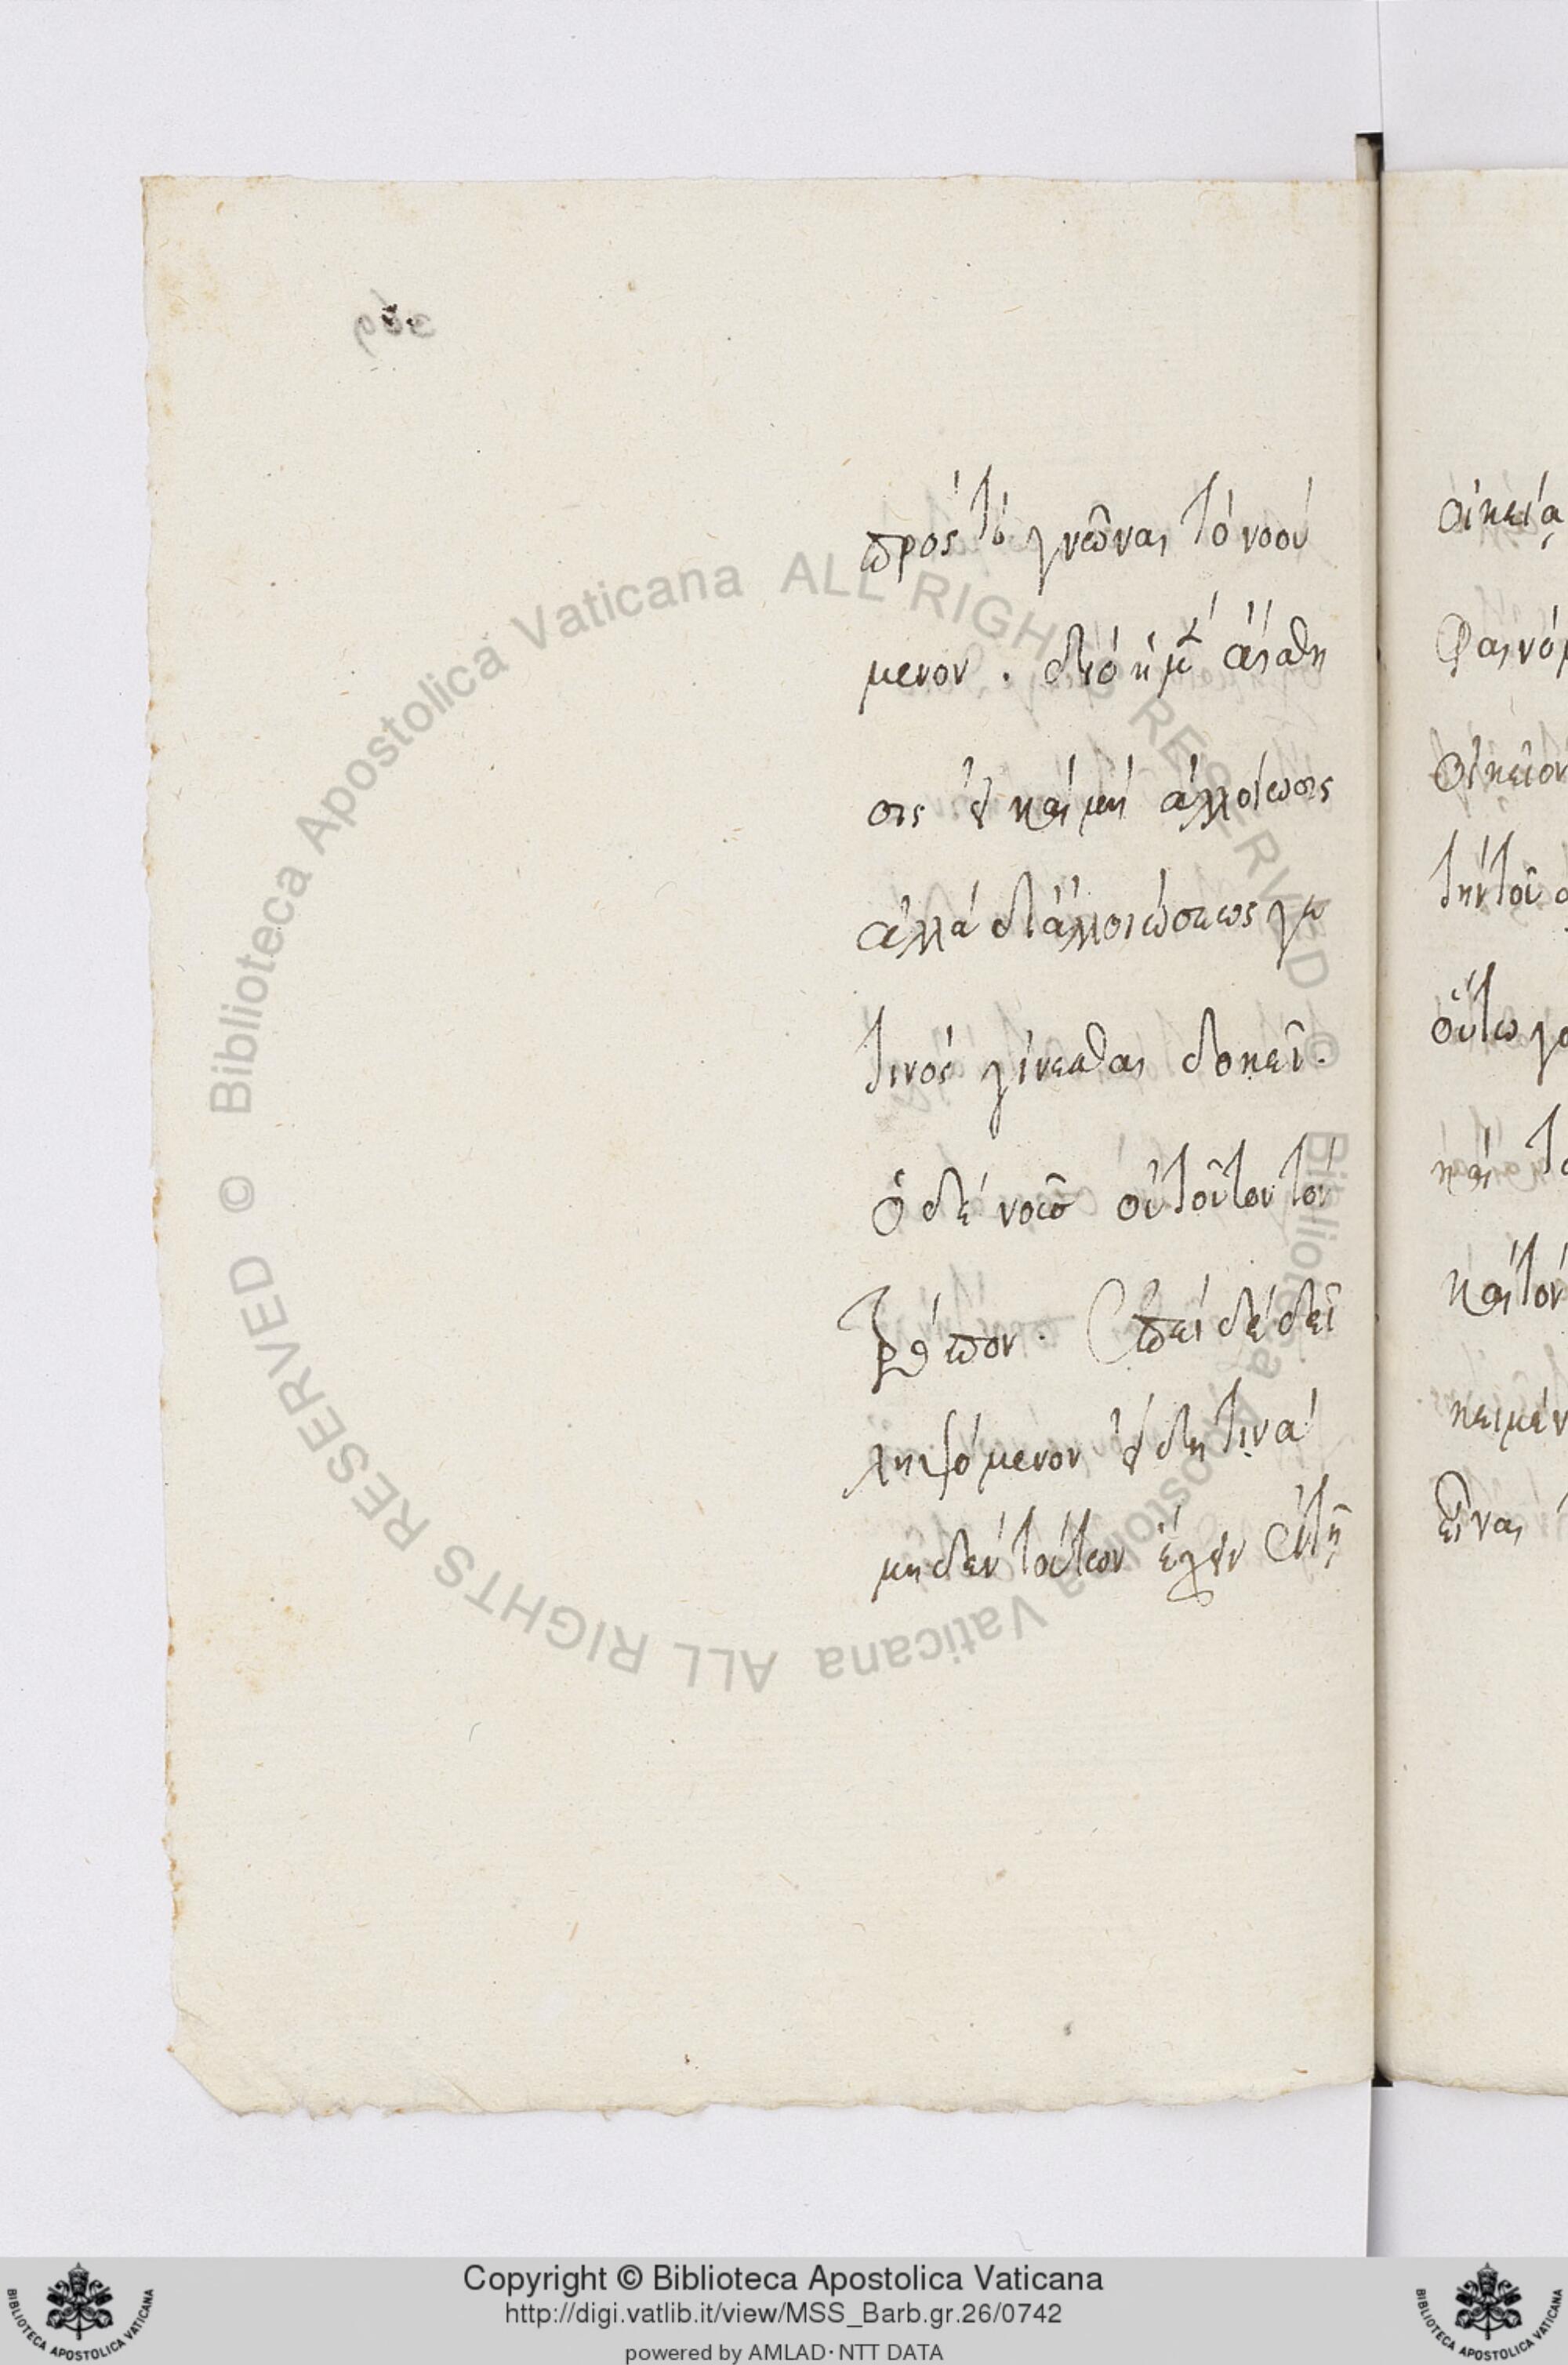 πρός τό γνῶναι τό νοού
μενον . διό ἡ μ̀ αἴσθη
σις εἰ καί μή ἀλλοίωσις
ἀλλά δι' ἀλλοιώσεως γέ
τινός γίνεσθαι δοκεῖ.
ὁ δέ νοῦς οὐ τοῦτον τόν
τρόπον. Ἐπεί δέ δεῖ
ληψόμενον εἴδη τινά
μηδέν τούτων ἔχειν ἐν τῇ
οἰκεία
φαινόμ
οἰκεῖον
τήν τοῦ
οὕτω γ
καί τ
καί τόν
κειμέν
εἶναι
Biblioteca Apostolica Vaticana ALL RIGHTS RESERVED ©
Biblioteca Apostolica Vaticana ALL RIGHTS RESERVED ©
Copyright © Biblioteca Apostolica Vaticana
http://digi.vatlib.it/view/MSS_Barb.gr.26/0742
powered by AMLAD·NTT DATA
BIBLIOTECA APOSTOLICA VATICANA
BIBLIOTECA APOSTOLICA VATICANA